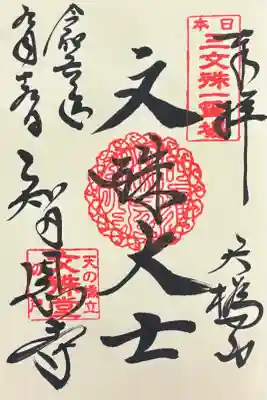 奉拝
日本
三文殊一霊場
天橋山
文殊大士
令和六年
智恩寺
天の橋立
文殊堂